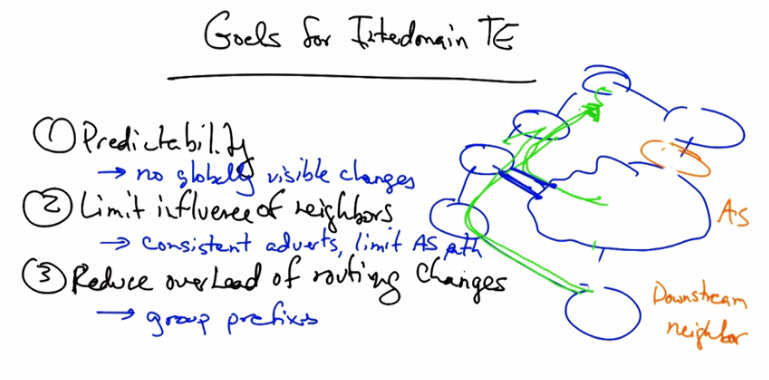 Goals for Interdomain TE
① Predictability
→ no globally visible changes
② Limit influence of neighbors
→ consistent adverts, limit AS path
③ Reduce overhead of routing changes
→ group prefixes
AS
Downstream
neighbor